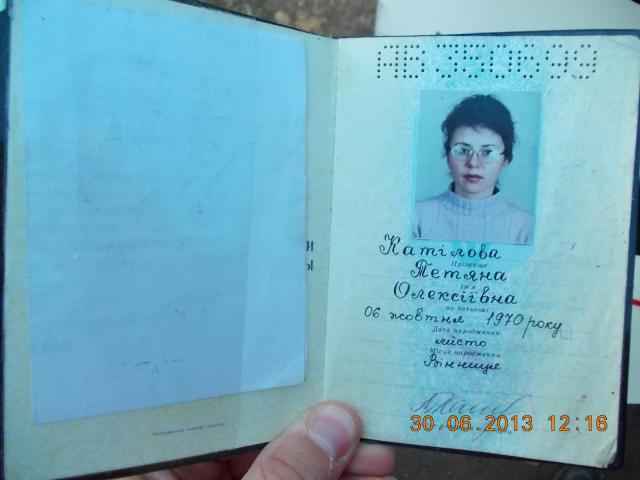 АВ 350699
Катілова
Прізвище
Тетяна
Ім'я
Олексіївна
по батькові
06 жовтня 1970 року
Дата народження
місто
Місце народження
Вінниця
И
Ы
30.06.2013 12:16